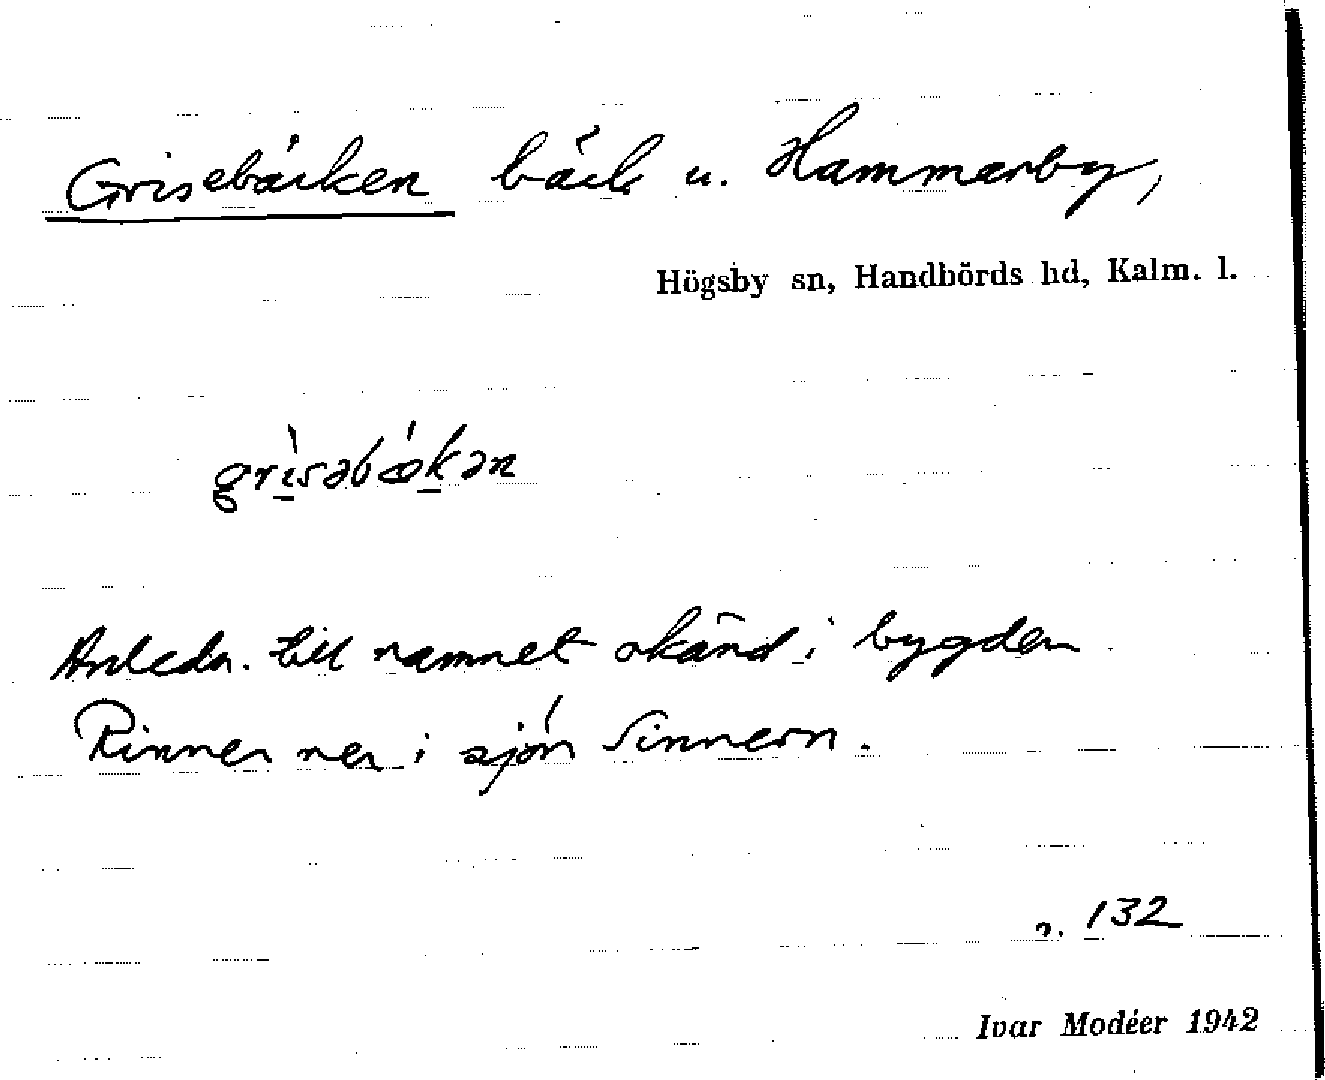 Grisebäcken bäck u. Hammarby,
Högsby sn, Handbörds hd, Kalm. l.
grìsəbǽkən
Anledn. till namnet okänd i bygden
Rinner ner i sjön Sinnern.
2. 132
Ivar Modéer 1942